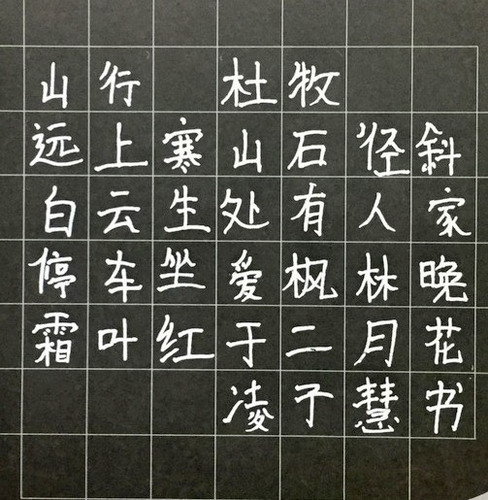 山行 杜牧
远上寒山石径斜
白云生处有人家
停车坐爱枫林晚
霜叶红于二月花
凌于慧书